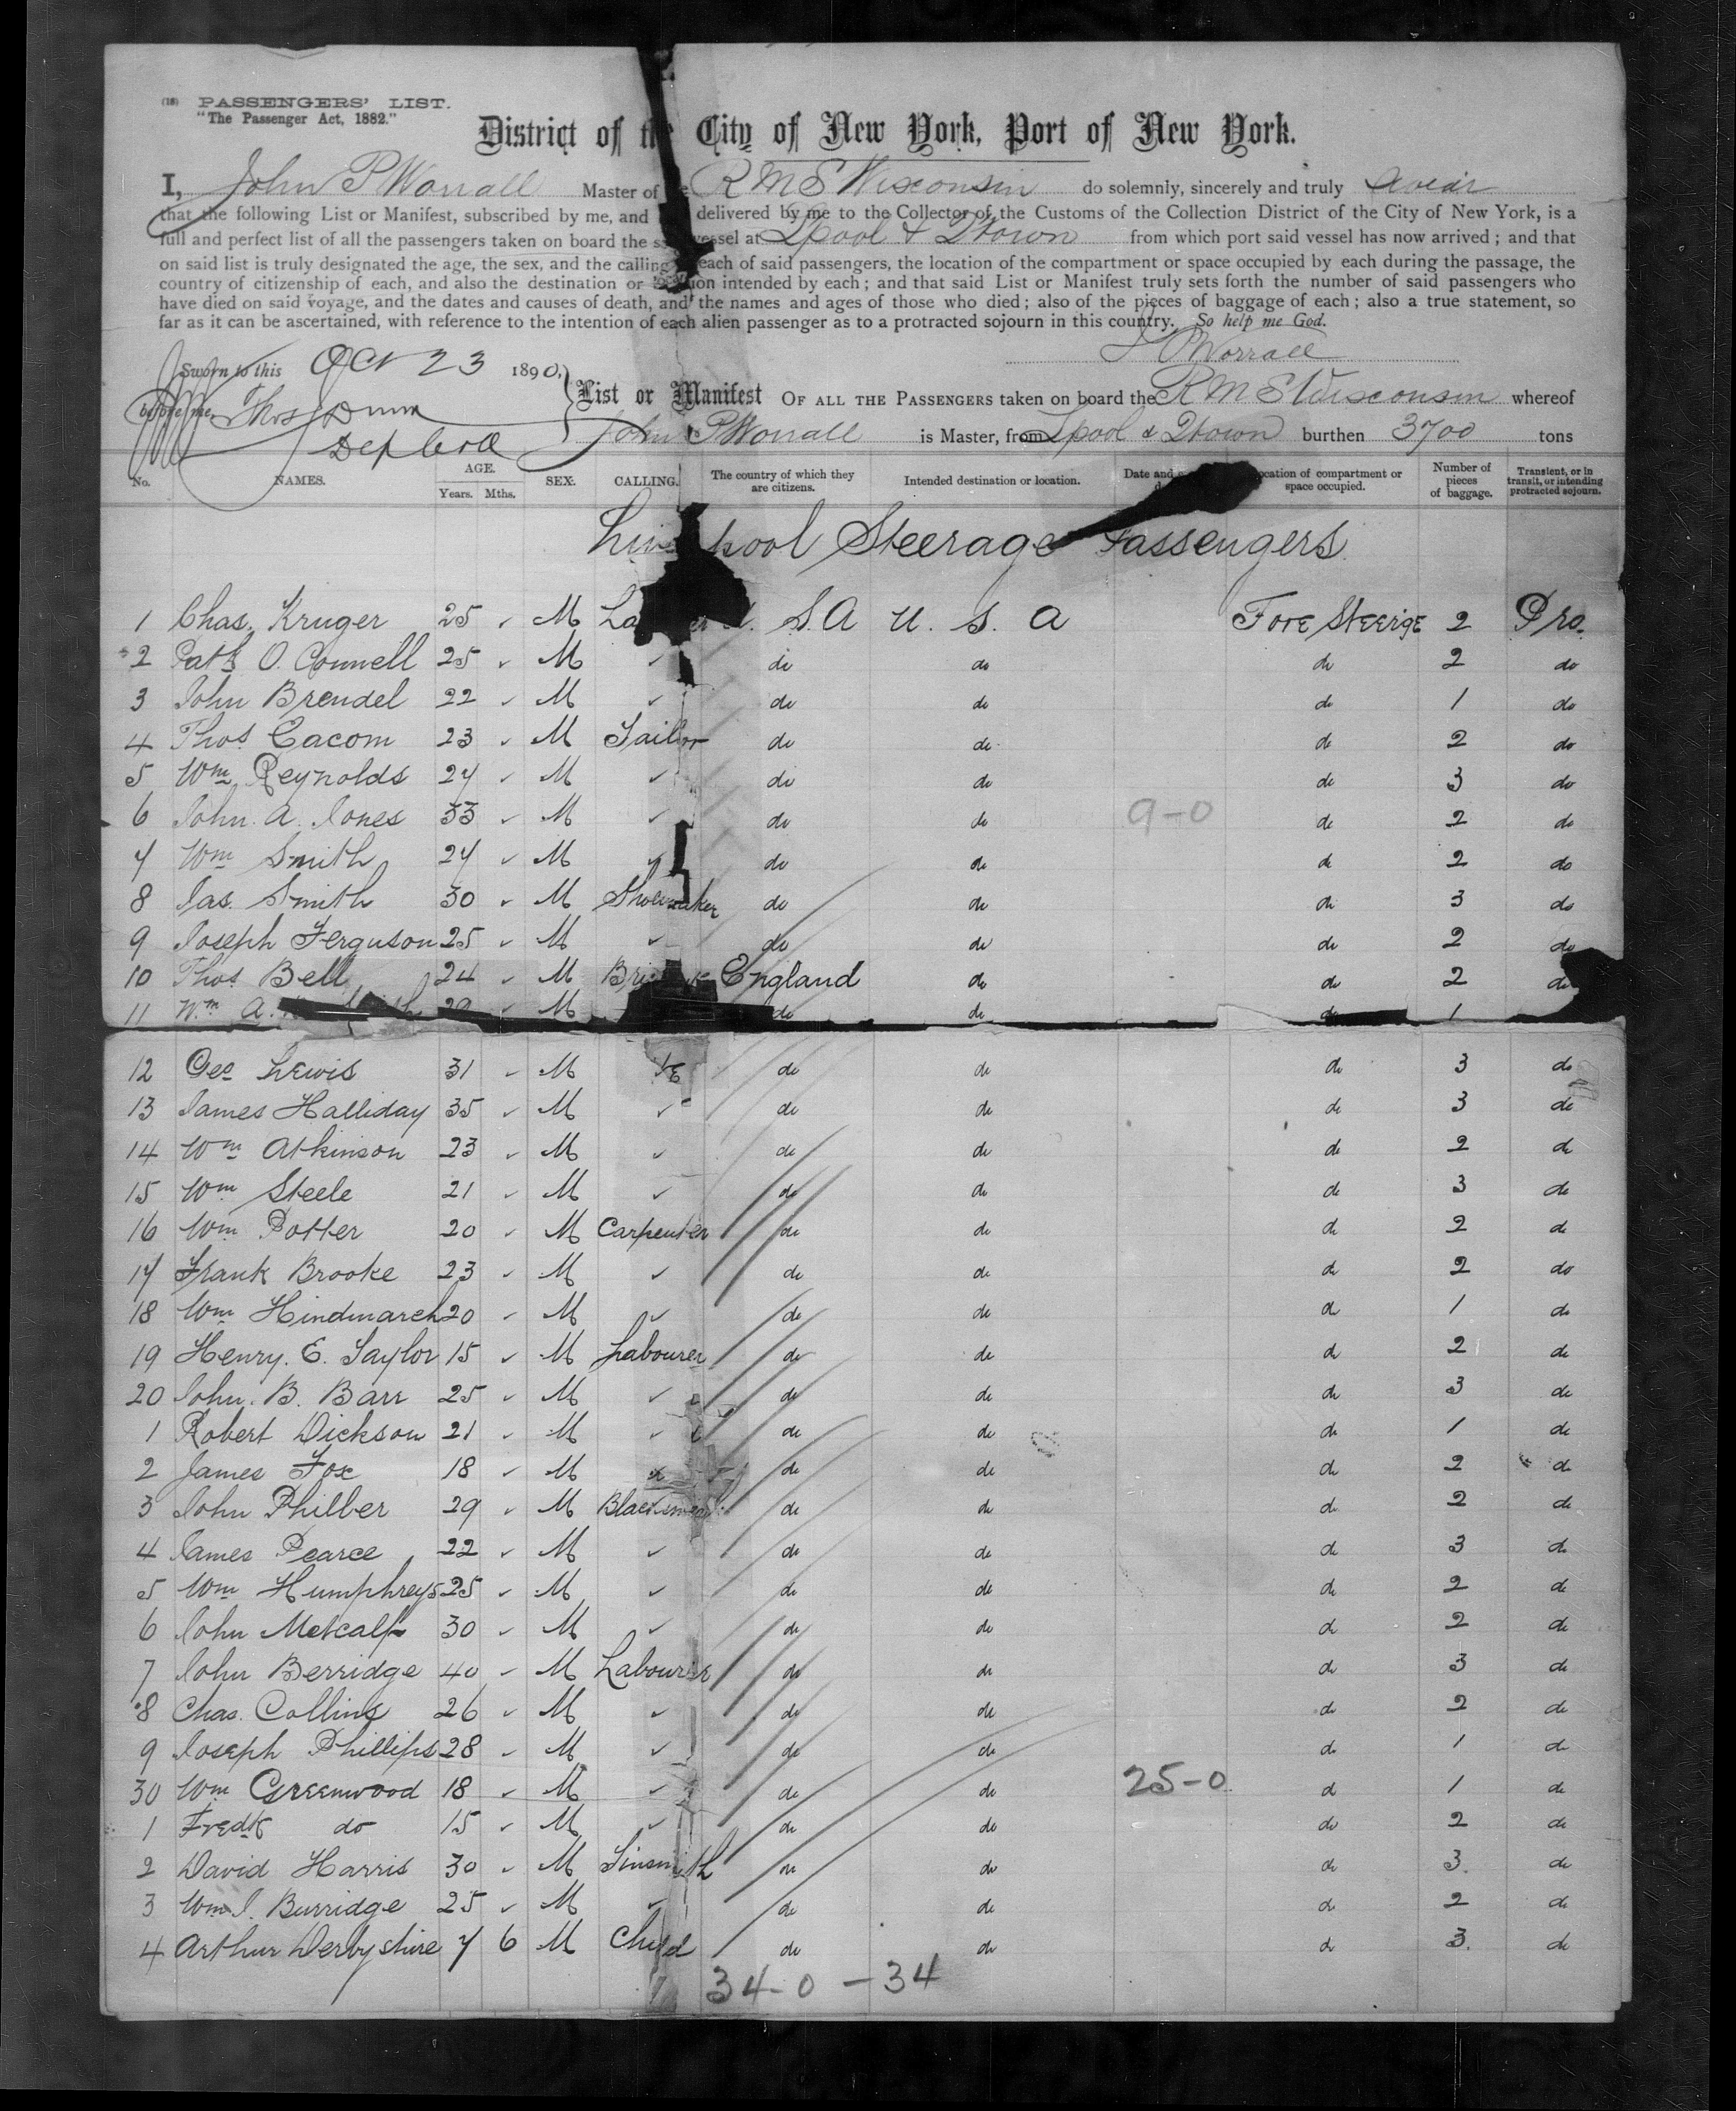 (18) PASSENGERS' LIST.
"The Passenger Act, 1882."
District of the City of New York, Port of New York.
I, John P Worrall Master of the R M S Wisconsin do solemnly, sincerely and truly swear
that the following List or Manifest, subscribed by me, and delivered by me to the Collector of the Customs of the Collection District of the City of New York, is a
full and perfect list of all the passengers taken on board the vessel at Lpool & Qtown from which port said vessel has now arrived; and that
on said list is truly designated the age, the sex, and the calling each of said passengers, the location of the compartment or space occupied by each during the passage, the
country of citizenship of each, and also the destination or intended by each; and that said List or Manifest truly sets forth the number of said passengers who
have died on said voyage, and the dates and causes of death, and the names and ages of those who died; also of the pieces of baggage of each; also a true statement, so
far as it can be ascertained, with reference to the intention of each alien passenger as to a protracted sojourn in this country. So help me God.
J P Worrall
Sworn to this Oct 23 1890,
before me, Thos Dunn
Dep Coll
List or Manifest OF ALL THE PASSENGERS taken on board the R M S Wisconsin whereof
John P Worrall is Master, from Lpool & Qtown burthen 3700 tons
No. NAMES. AGE. Years. Mths. SEX. CALLING. The country of which they are citizens. Intended destination or location. Date and location of compartment or space occupied. Number of pieces of baggage. Transient, or in transit, or intending protracted sojourn.
Liverpool Steerage Passengers
1 Chas. Kruger 25 ✓ M U. S. A U. S. A Fore Steerge 2 Pro.
2 Patk O. Connell 25 ✓ M ✓ do do do 2 do
3 John Brendel 22 ✓ M ✓ do do do 1 do
4 Thos Cacom 23 ✓ M Tailor do do do 2 do
5 Wm Reynolds 24 ✓ M ✓ do do do 3 do
6 John. A. Jones 33 ✓ M ✓ do do 9-0 do 2 do
7 Wm Smith 24 ✓ M ✓ do do do 2 do
8 Jas. Smith 30 ✓ M Shoemaker do do do 3 do
9 Joseph Ferguson 25 ✓ M ✓ do do do 2 do
10 Thos Bell 24 ✓ M England do do 2 do
11 Wm A. 29 ✓ M do do do 1
12 Geo Lewis 31 ✓ M do do do 3 do
13 James Halliday 35 ✓ M ✓ do do do 3 do
14 Wm Atkinson 23 ✓ M ✓ do do do 2 do
15 Wm Steele 21 ✓ M ✓ do do do 3 do
16 Wm Potter 20 ✓ M Carpenter do do do 2 do
17 Frank Brooke 23 ✓ M ✓ do do do 2 do
18 Wm Hindmarch 20 ✓ M ✓ do do do 1 do
19 Henry. E. Taylor 15 ✓ M Labourer do do do 2 do
20 John. B. Barr 25 ✓ M ✓ do do do 3 do
1 Robert Dickson 21 ✓ M ✓ do do do 1 do
2 James Fox 18 ✓ M ✓ do do do 2 do
3 John Philber 29 ✓ M Blacksmith do do do 2 do
4 James Pearce 22 ✓ M ✓ do do do 3 do
5 Wm Humphreys 25 ✓ M ✓ do do do 2 do
6 John Metcalf 30 ✓ M ✓ do do do 2 do
7 John Berridge 40 ✓ M Labourer do do do 3 do
8 Chas. Collins 26 ✓ M ✓ do do do 2 do
9 Joseph Phillips 28 ✓ M ✓ do do do 1 do
30 Wm Greenwood 18 ✓ M ✓ do do 25-0 do 1 do
1 Fredk do 15 ✓ M ✓ do do do 2 do
2 David Harris 30 ✓ M Tinsmith do do do 3. do
3 Wm J. Burridge 25 ✓ M ✓ do do do 2 do
4 Arthur Derbyshire 7 6 M Child do do do 3. do
34-0-34